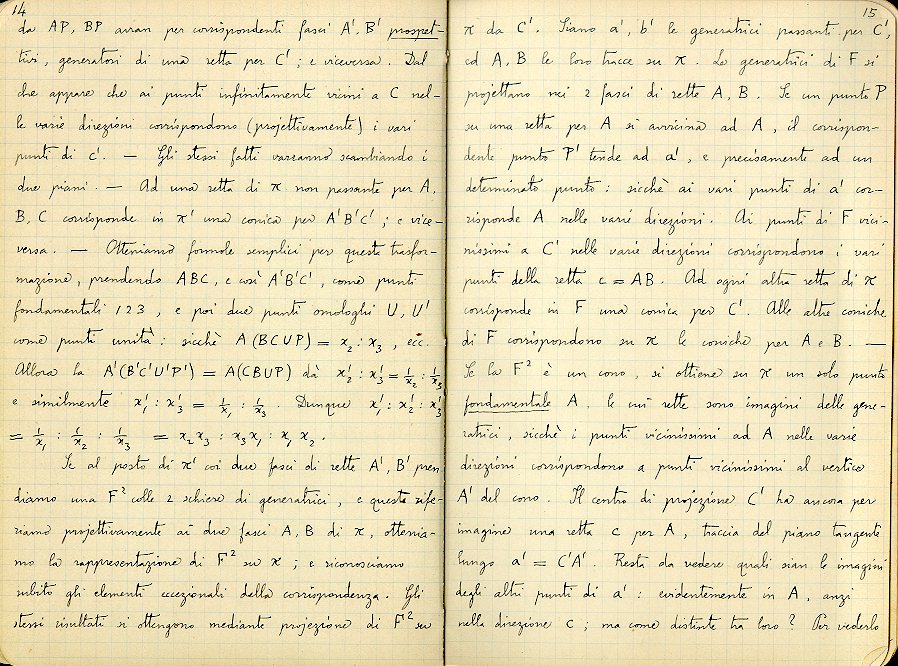 14
da AP, BP avran per corrispondenti fasci A', B' prospet-
tivi, generatori di una retta per C'; e viceversa. Dal
che appare che ai punti infinitamente vicini a C nel-
le varie direzioni corrispondono (projettivamente) i vari
punti di c'. — Gli stessi fatti varranno scambiando i
due piani. — Ad una retta di π non passante per A,
B, C corrisponde in π' una conica per A'B'C'; e vice-
versa. — Otteniamo formole semplici per questa trasfor-
mazione, prendendo ABC, e così A'B'C', come punti
fondamentali 1 2 3, e poi due punti omologhi U, U'
come punti unità: sicchè A(BCUP) = x₂ : x₃, ecc.
Allora la A'(B'C'U'P') = A(CBUP) dà x'₂ : x'₃ = 1/x₂ : 1/x₃
e similmente x'₁ : x'₃ = 1/x₁ : 1/x₃. Dunque x'₁ : x'₂ : x'₃
= 1/x₁ : 1/x₂ : 1/x₃ = x₂x₃ : x₃x₁ : x₁x₂.
Se al posto di π' coi due fasci di rette A', B' pren
diamo una F² colle 2 schiere di generatrici, e queste rife-
riamo projettivamente ai due fasci A, B di π, ottenia-
mo la rappresentazione di F² su π; e riconosciamo
subito gli elementi eccezionali della corrispondenza. Gli
stessi risultati si ottengono mediante projezione di F² su
15
π da C'. Siano a', b' le generatrici passanti per C',
ed A, B le loro tracce su π. Le generatrici di F si
projettano nei 2 fasci di rette A, B. Se un punto P
su una retta per A si avvicina ad A, il corrispon-
dente punto P' tende ad a', e precisamente ad un
determinato punto: sicchè ai vari punti di a' cor-
risponde A nelle varie direzioni. Ai punti di F vici-
nissimi a C' nelle varie direzioni corrispondono i vari
punti della retta c = AB. Ad ogni altra retta di π
corrisponde in F una conica per C'. Alle altre coniche
di F corrispondono su π le coniche per A e B. —
Se la F² è un cono, si ottiene su π un solo punto
fondamentale A, le cui rette sono imagini delle gene-
ratrici, sicchè i punti vicinissimi ad A nelle varie
direzioni corrispondono a punti vicinissimi al vertice
A' del cono. Il centro di projezione C' ha ancora per
imagine una retta c per A, traccia del piano tangente
lungo a' = C'A'. Resta da vedere quali sian le imagini
degli altri punti di a': evidentemente in A, anzi
nella direzione c; ma come distinte tra loro? Per vederlo